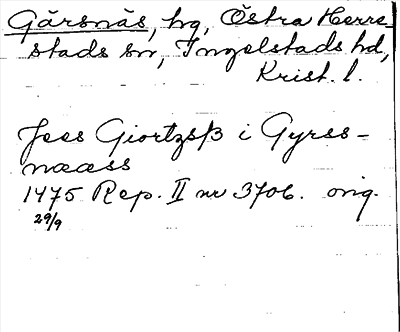 Gärsnäs, hg, Östra Herre-
stads sn, Ingelstads hd,
Krist. l.
Jees Giortzsß i Gyrss-
næess
1475 Rep. II nr 3706. orig.
29/9